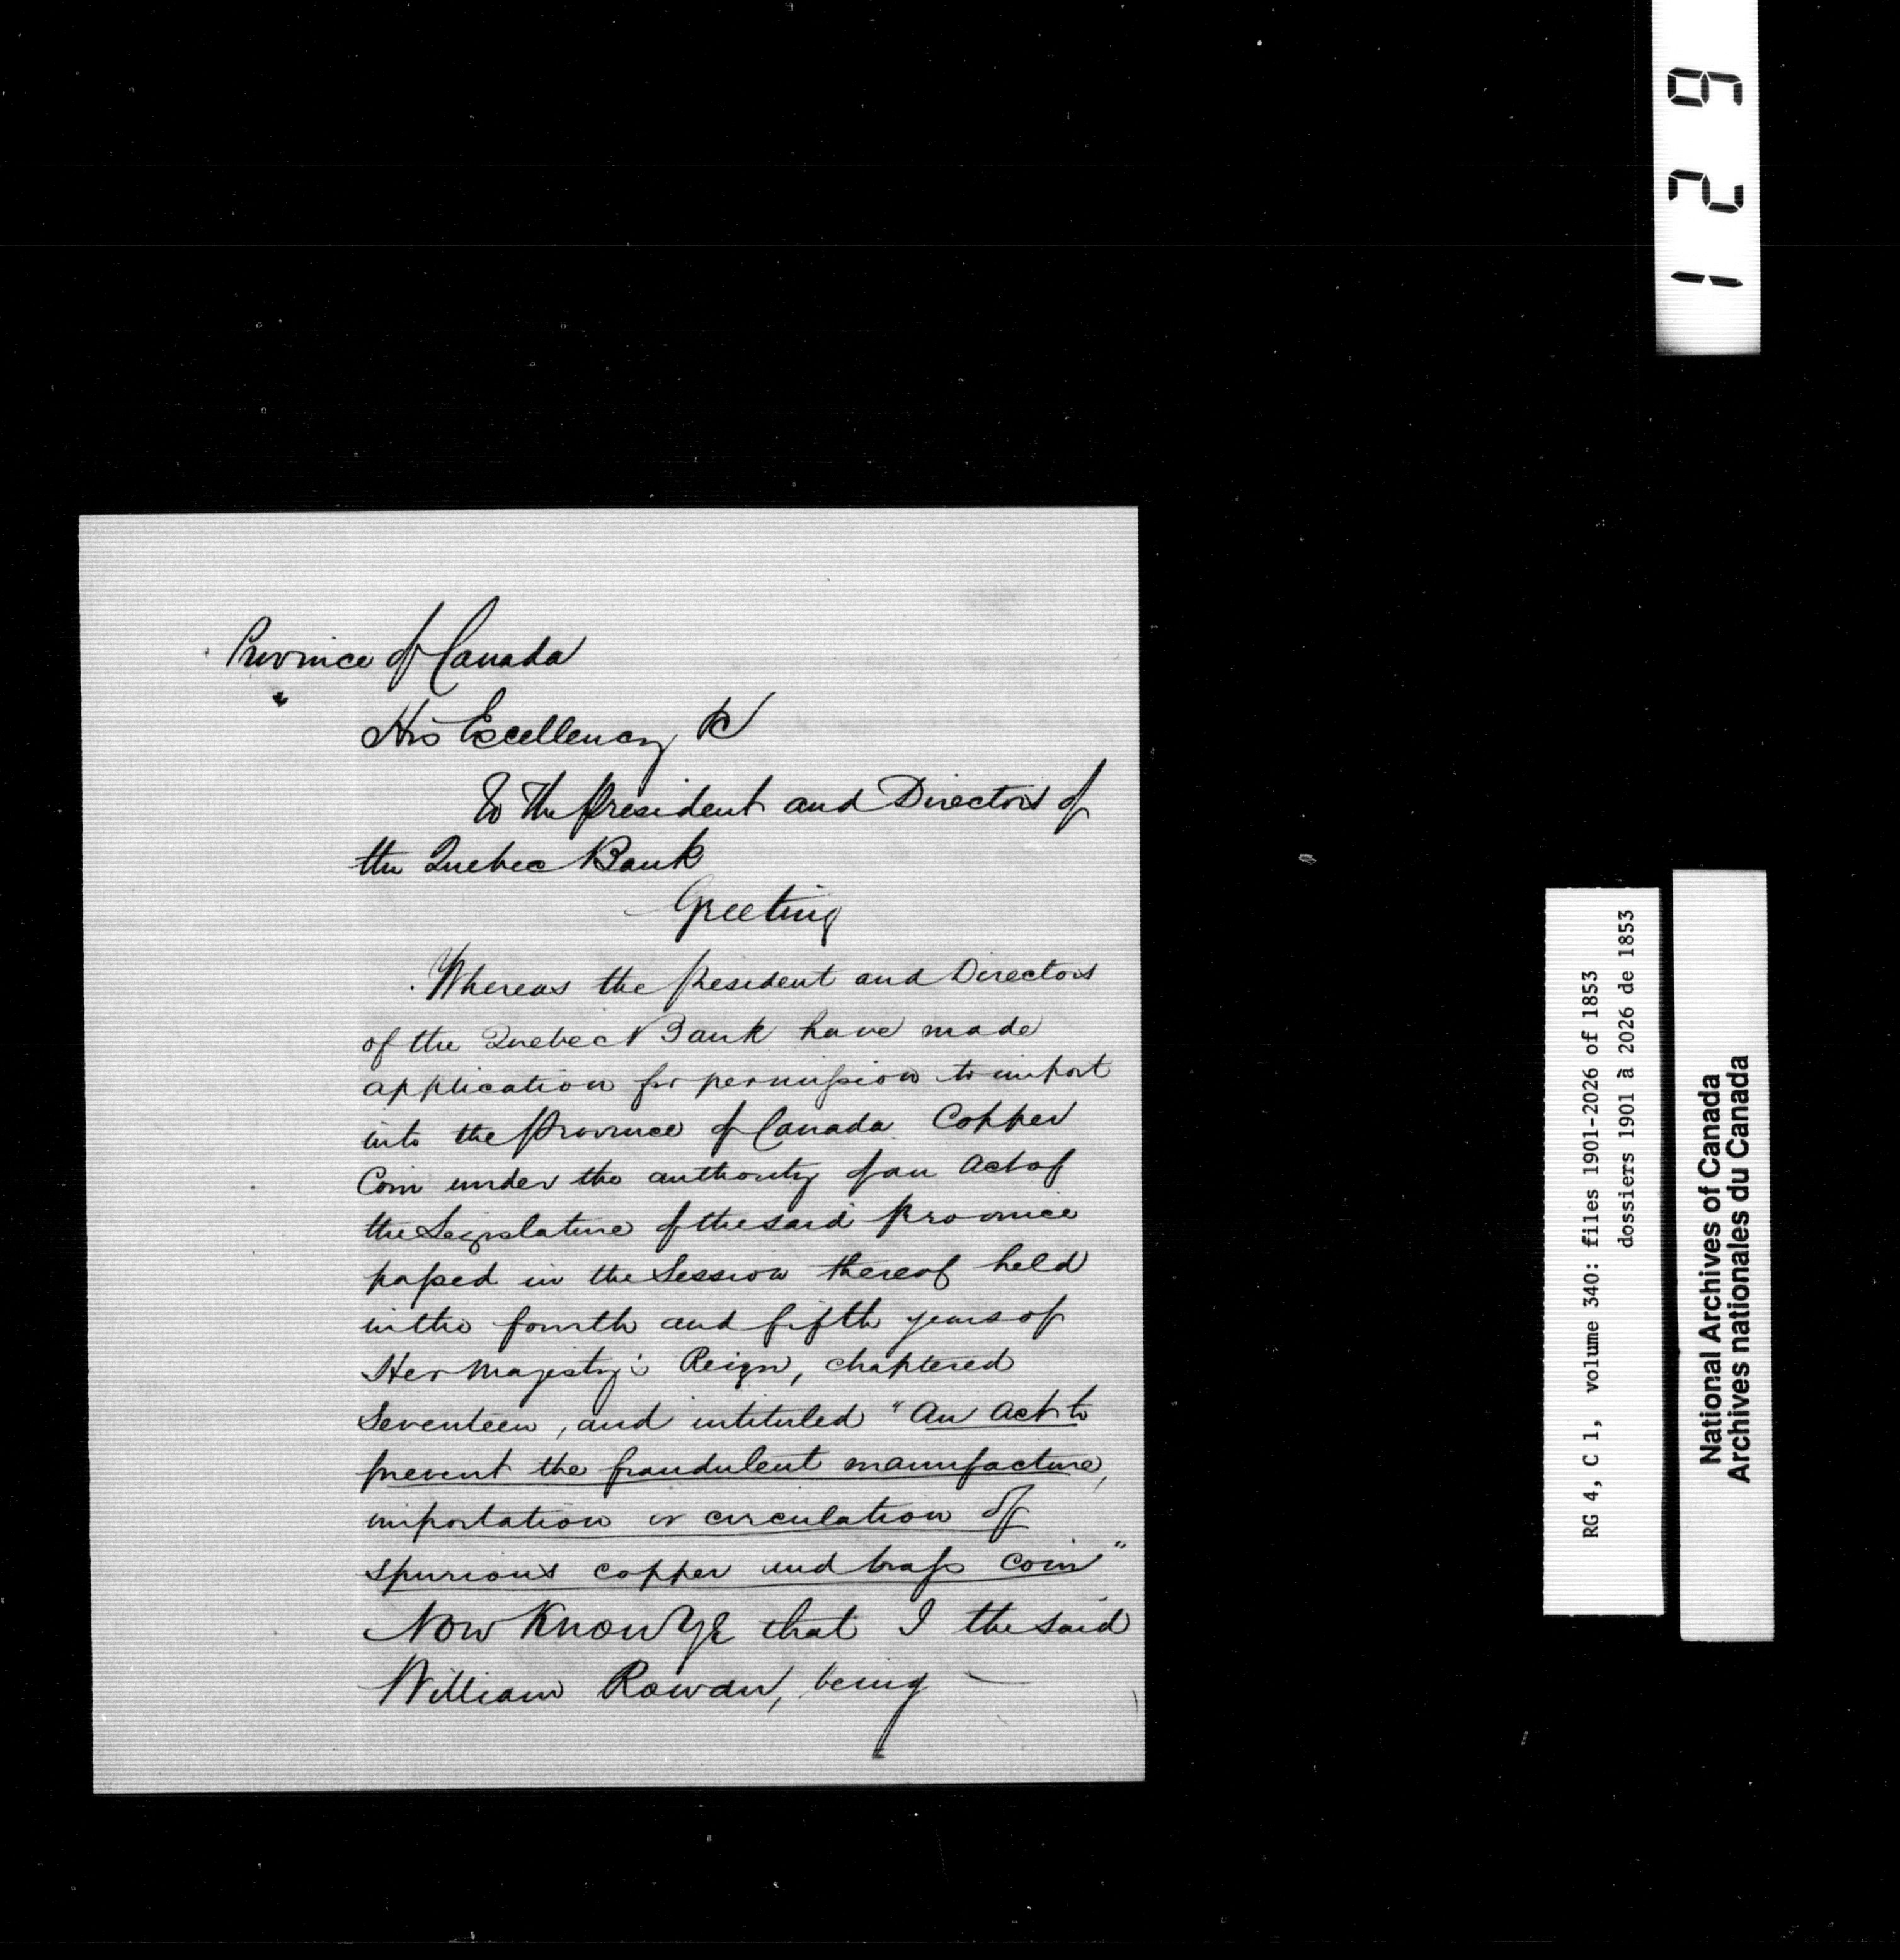 Province of Canada
His Excellency &c
To The President and Directors of
the Quebec Bank
Greeting
Whereas the President and Directors
of the Quebec Bank have made
application for permission to import
into the Province of Canada Copper
Coin under the authority of an Act of
the Legislature of the said Province
passed in the Session thereof held
in the fourth and fifth years of
Her Majesty's Reign, chaptered
Seventeen, and intituled "An Act to
prevent the fraudulent manufacture,
importation or circulation of
spurious copper and brass Coin"
Now Know Ye that I the said
William Rowan, being
129
RG 4, C 1, volume 340: files 1901-2026 of 1853
dossiers 1901 à 2026 de 1853
National Archives of Canada
Archives nationales du Canada